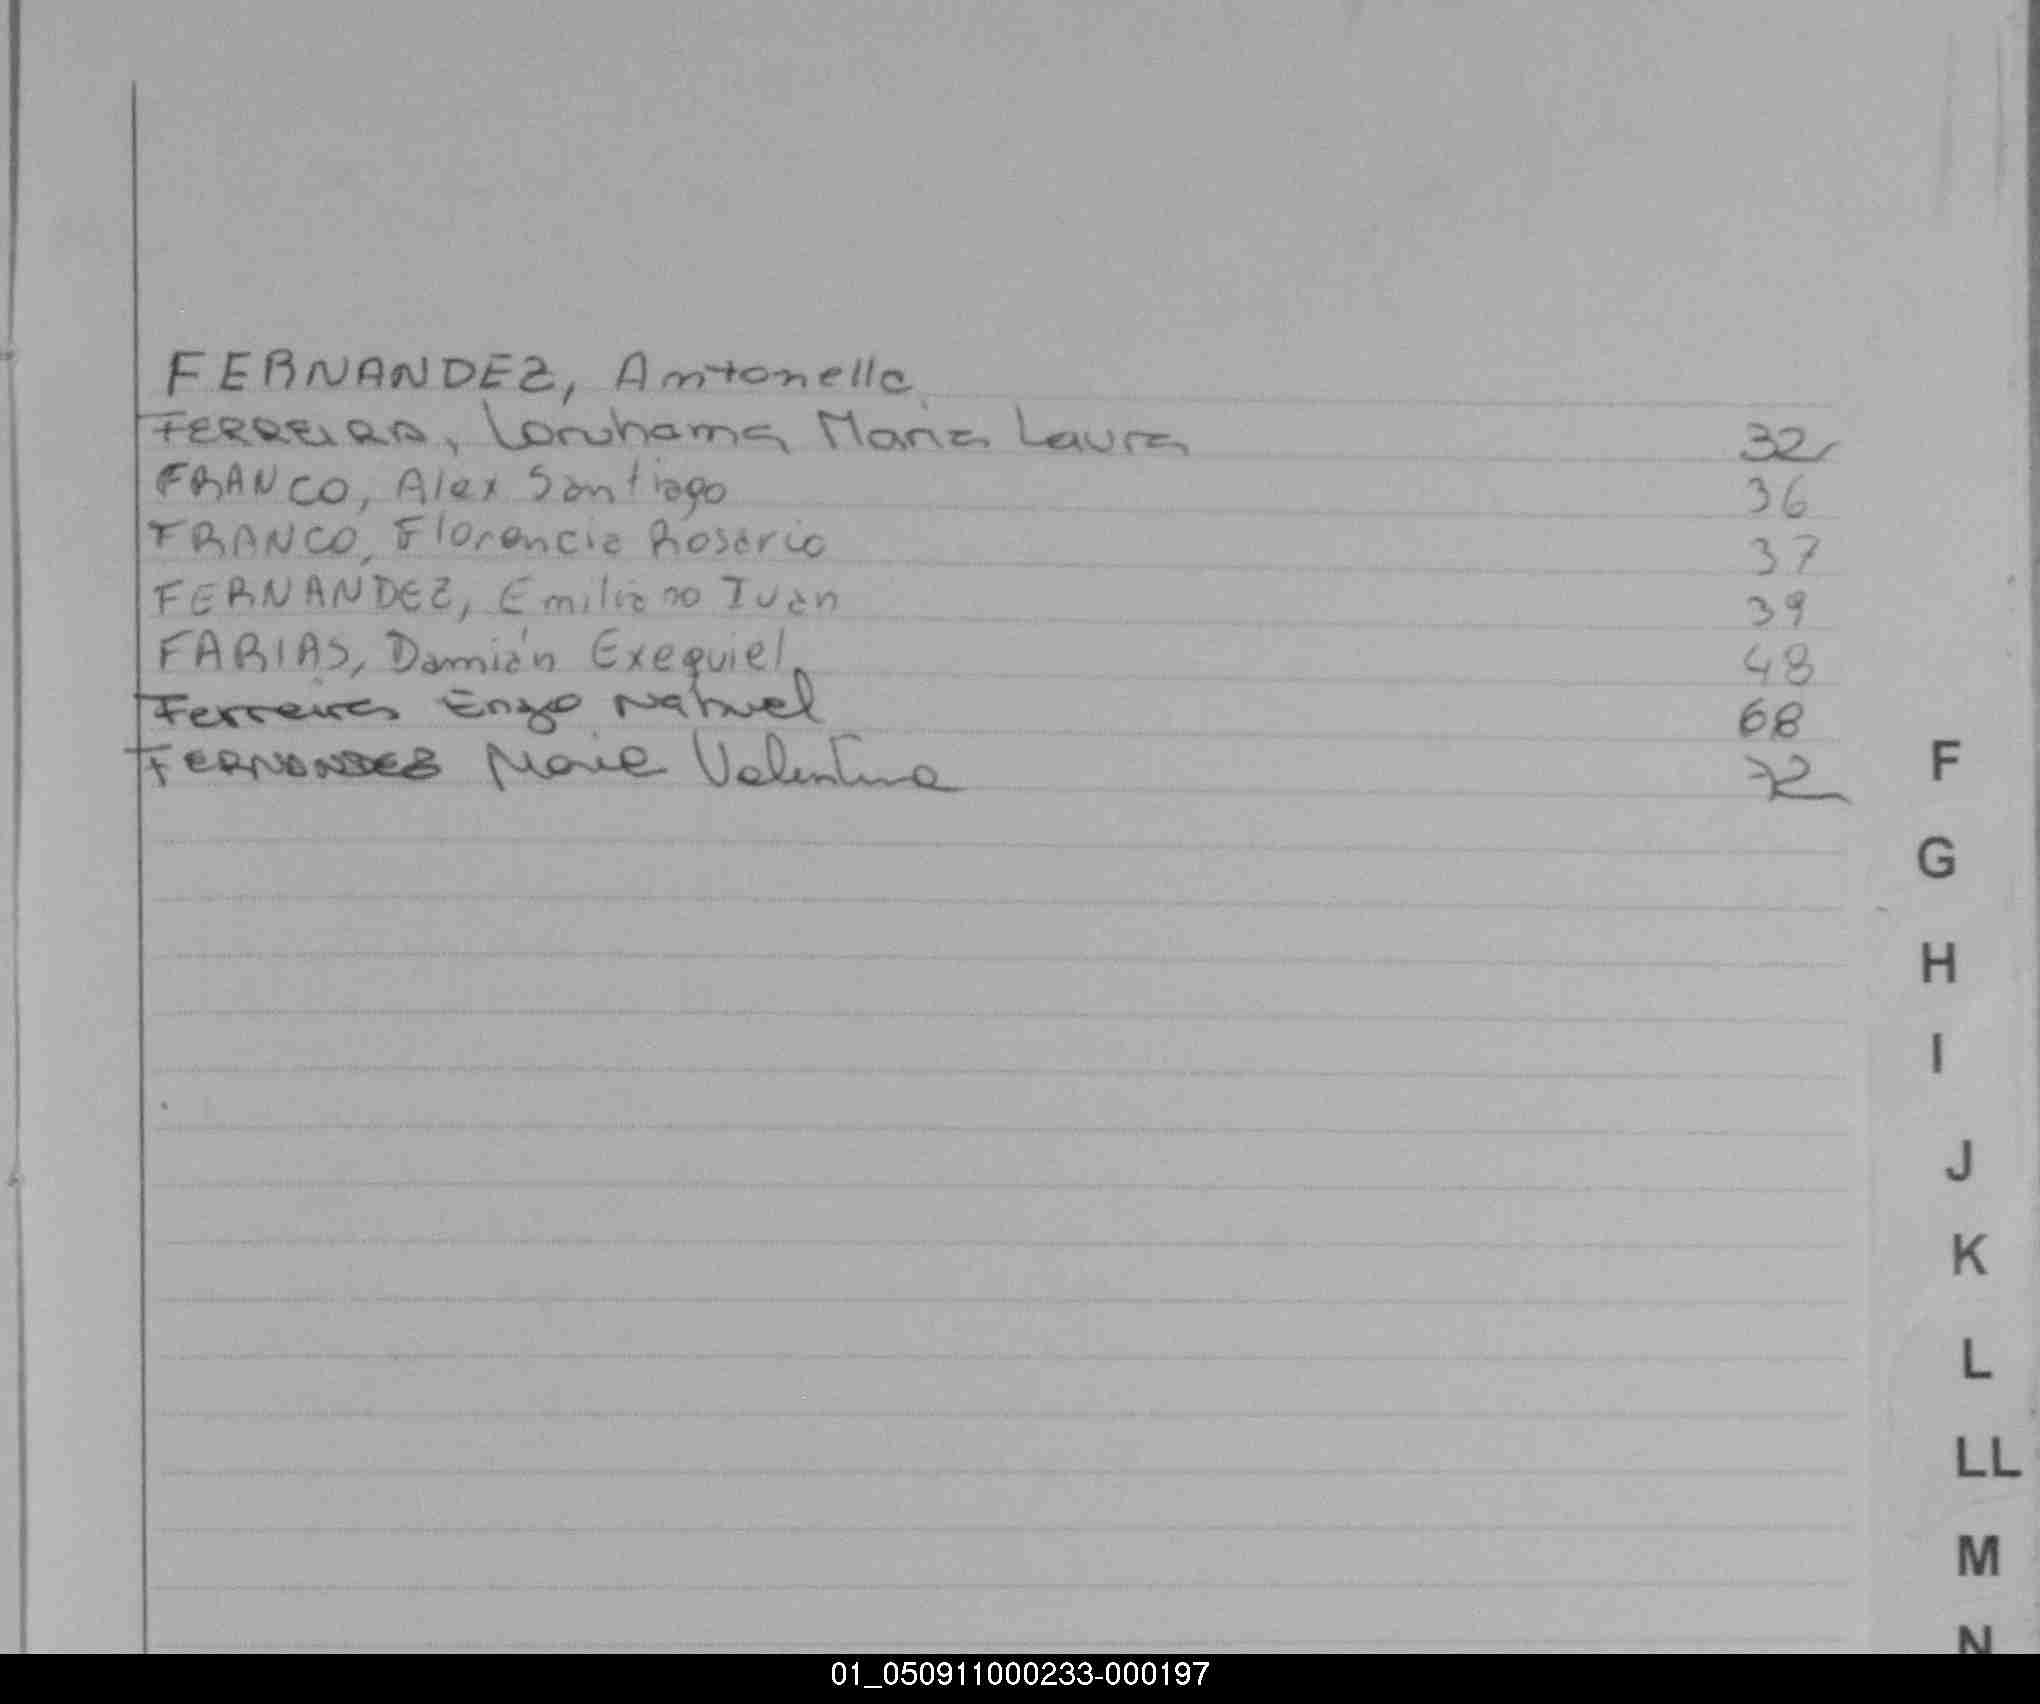 FERNANDEZ, Antonella
FERREIRA, Loruhama Maria Laura 32
FRANCO, Alex Santiago 36
FRANCO, Florencia Rosario 37
FERNANDEZ, Emiliano Ivan 39
FARIAS, Damián Exequiel 48
Ferreira Enzo Nahuel 68
FERNANDEZ Maria Valentina 72
F
G
H
I
J
K
L
LL
M
N
01_050911000233-000197